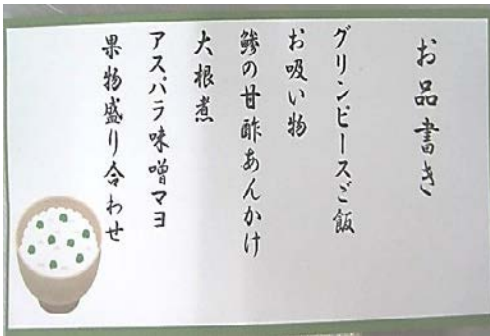 お品書き
グリンピースご飯
お吸い物
鯵の甘酢あんかけ
大根煮
アスパラ味噌マヨ
果物盛り合わせ